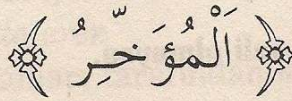 اَلْمُؤَخِّرُ